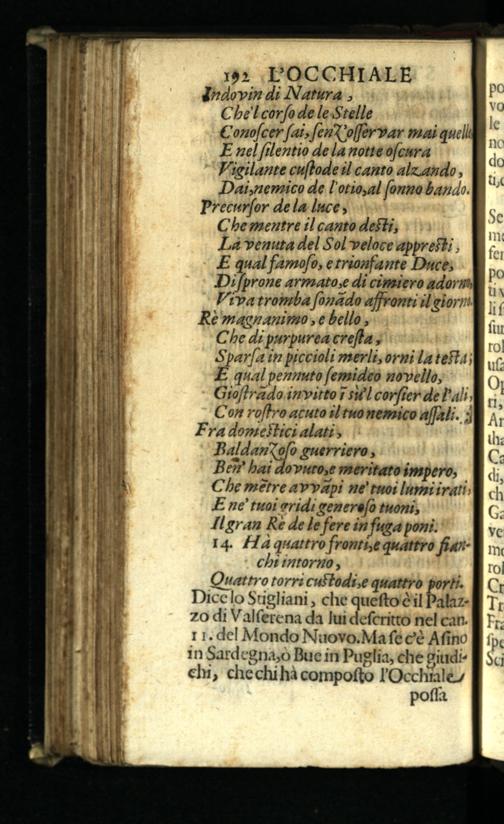 192 L'OCCHIALE
Indovin di Natura,
Che'l corſo de le Stelle
Conoſcer ſai, ſenz'oſſervar mai quelle
E nel ſilentio de la notte oſcura
Vigilante cuſtode il canto alzando,
Dai, nemico de l'otio, al ſonno bando.
Precurſor de la luce,
Che mentre il canto deſti,
La venuta del Sol veloce appreſti,
E qual famoſo, e trionfante Duce,
Di ſprone armato, e di cimiero adorno,
Viva tromba ſonãdo affronti il giorno.
Rè magnanimo, e bello,
Che di purpurea creſta,
Sparſa in piccioli merli, orni la teſta;
E qual pennuto ſemideo novello,
Gioſtrãdo invitto ĩ sù'l corſier de l'ali,
Con roſtro acuto il tuo nemico aſſali.
Fra domeſtici alati,
Baldanzoſo guerriero,
Ben' hai dovuto, e meritato impero,
Che mẽtre avvãpi ne' tuoi lumi irati,
E ne' tuoi gridi generoſo tuoni,
Il gran Rè de le fere in fuga poni.
14. Hà quattro fronti, e quattro fian-
chi intorno,
Quattro torri cuſtodi, e quattro porti.
Dice lo Stigliani, che queſto è il Palaz-
zo di Valſerena da lui deſcritto nel can.
11. del Mondo Nuovo. Ma ſe c'è Aſino
in Sardegna, ò Bue in Puglia, che giudi-
chi, che chi hà compoſto l'Occhiale
poſſa